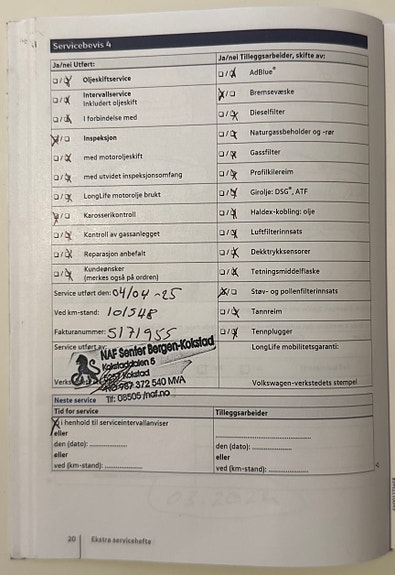 Servicebevis 4
Ja/nei Utført:
Oljeskiftservice
Intervallservice
Inkludert oljeskift
I forbindelse med
Inspeksjon
med motoroljeskift
med utvidet inspeksjonsomfang
LongLife motorolje brukt
Karosserikontroll
Kontroll av gassanlegget
Reparasjon anbefalt
Kundeønsker
(merkes også på ordren)
Service utført den: 04/04-25
Ved km-stand: 101548
Fakturanummer: 5171955
Service utført av:
NAF Senter Bergen-Kokstad
Kokstaddalen 5
Kokstad
987 372 540 MVA
Tlf: 08505 /naf.no
Ja/nei Tilleggsarbeider, skifte av:
AdBlue®
Bremsevæske
Dieselfilter
Naturgassbeholder og -rør
Gassfilter
Profilkilereim
Girolje: DSG®, ATF
Haldex-kobling: olje
Luftfilterinnsats
Dekktrykksensorer
Tetningsmiddelflaske
Støv- og pollenfilterinnsats
Tannreim
Tennplugger
LongLife mobilitetsgaranti:
Volkswagen-verkstedets stempel
Neste service
Tid for service
i henhold til serviceintervallanviser
eller
den (dato):
eller
ved (km-stand):
Tilleggsarbeider
den (dato):
eller
ved (km-stand):
20 Ekstra servicehefte